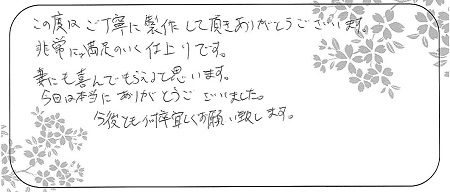 この度はご丁寧に製作して頂きありがとうございます。
非常に満足のいく仕上りです。
妻にも喜んでもらえると思います。
今日は本当にありがとうございました。
今後とも何卒宜しくお願い致します。